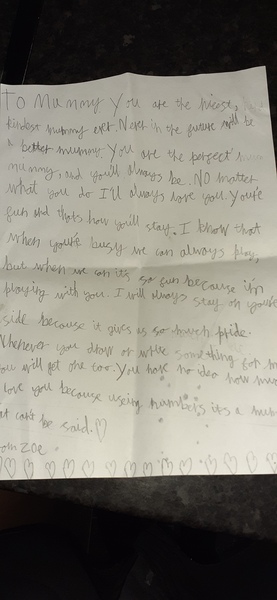 To Mummy You are the nicest,
kindest mummy ever. Never in the future will be
a better mummy. You are the perfect
mummy, and you'll always be. No matter
what you do I'll always love you. You're
fun and thats how you'll stay. I know that
when you're busy we can always play,
but when we can its so fun because i'm
playing with you. I will always stay on you're
side because it gives us so much pride.
Whenever you draw or write something for m
you will get one too. You have no idea how mu
love you because using numbers its a num
at can't be said. ♡
om Zoe
♡ ♡ ♡ ♡ ♡ ♡ ♡ ♡ ♡ ♡ ♡ ♡ ♡